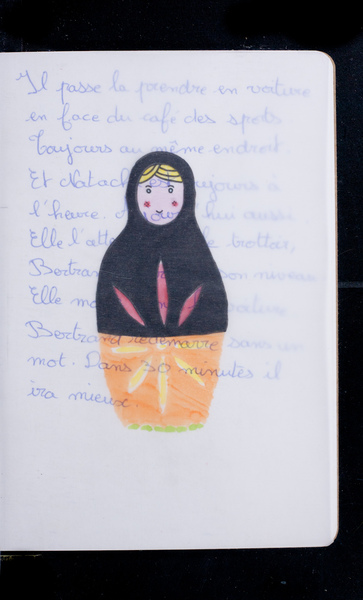 Il passe la prendre en voiture
en face du café des spots
Toujours au même endroit.
Et Natach est toujours à
l'heure. hui aussi
Elle l'atte le trottoir,
Bertran son niveau
Elle mo voiture
Bertrand redémarre sans un
mot. Dans 30 minutes il
ira mieux.